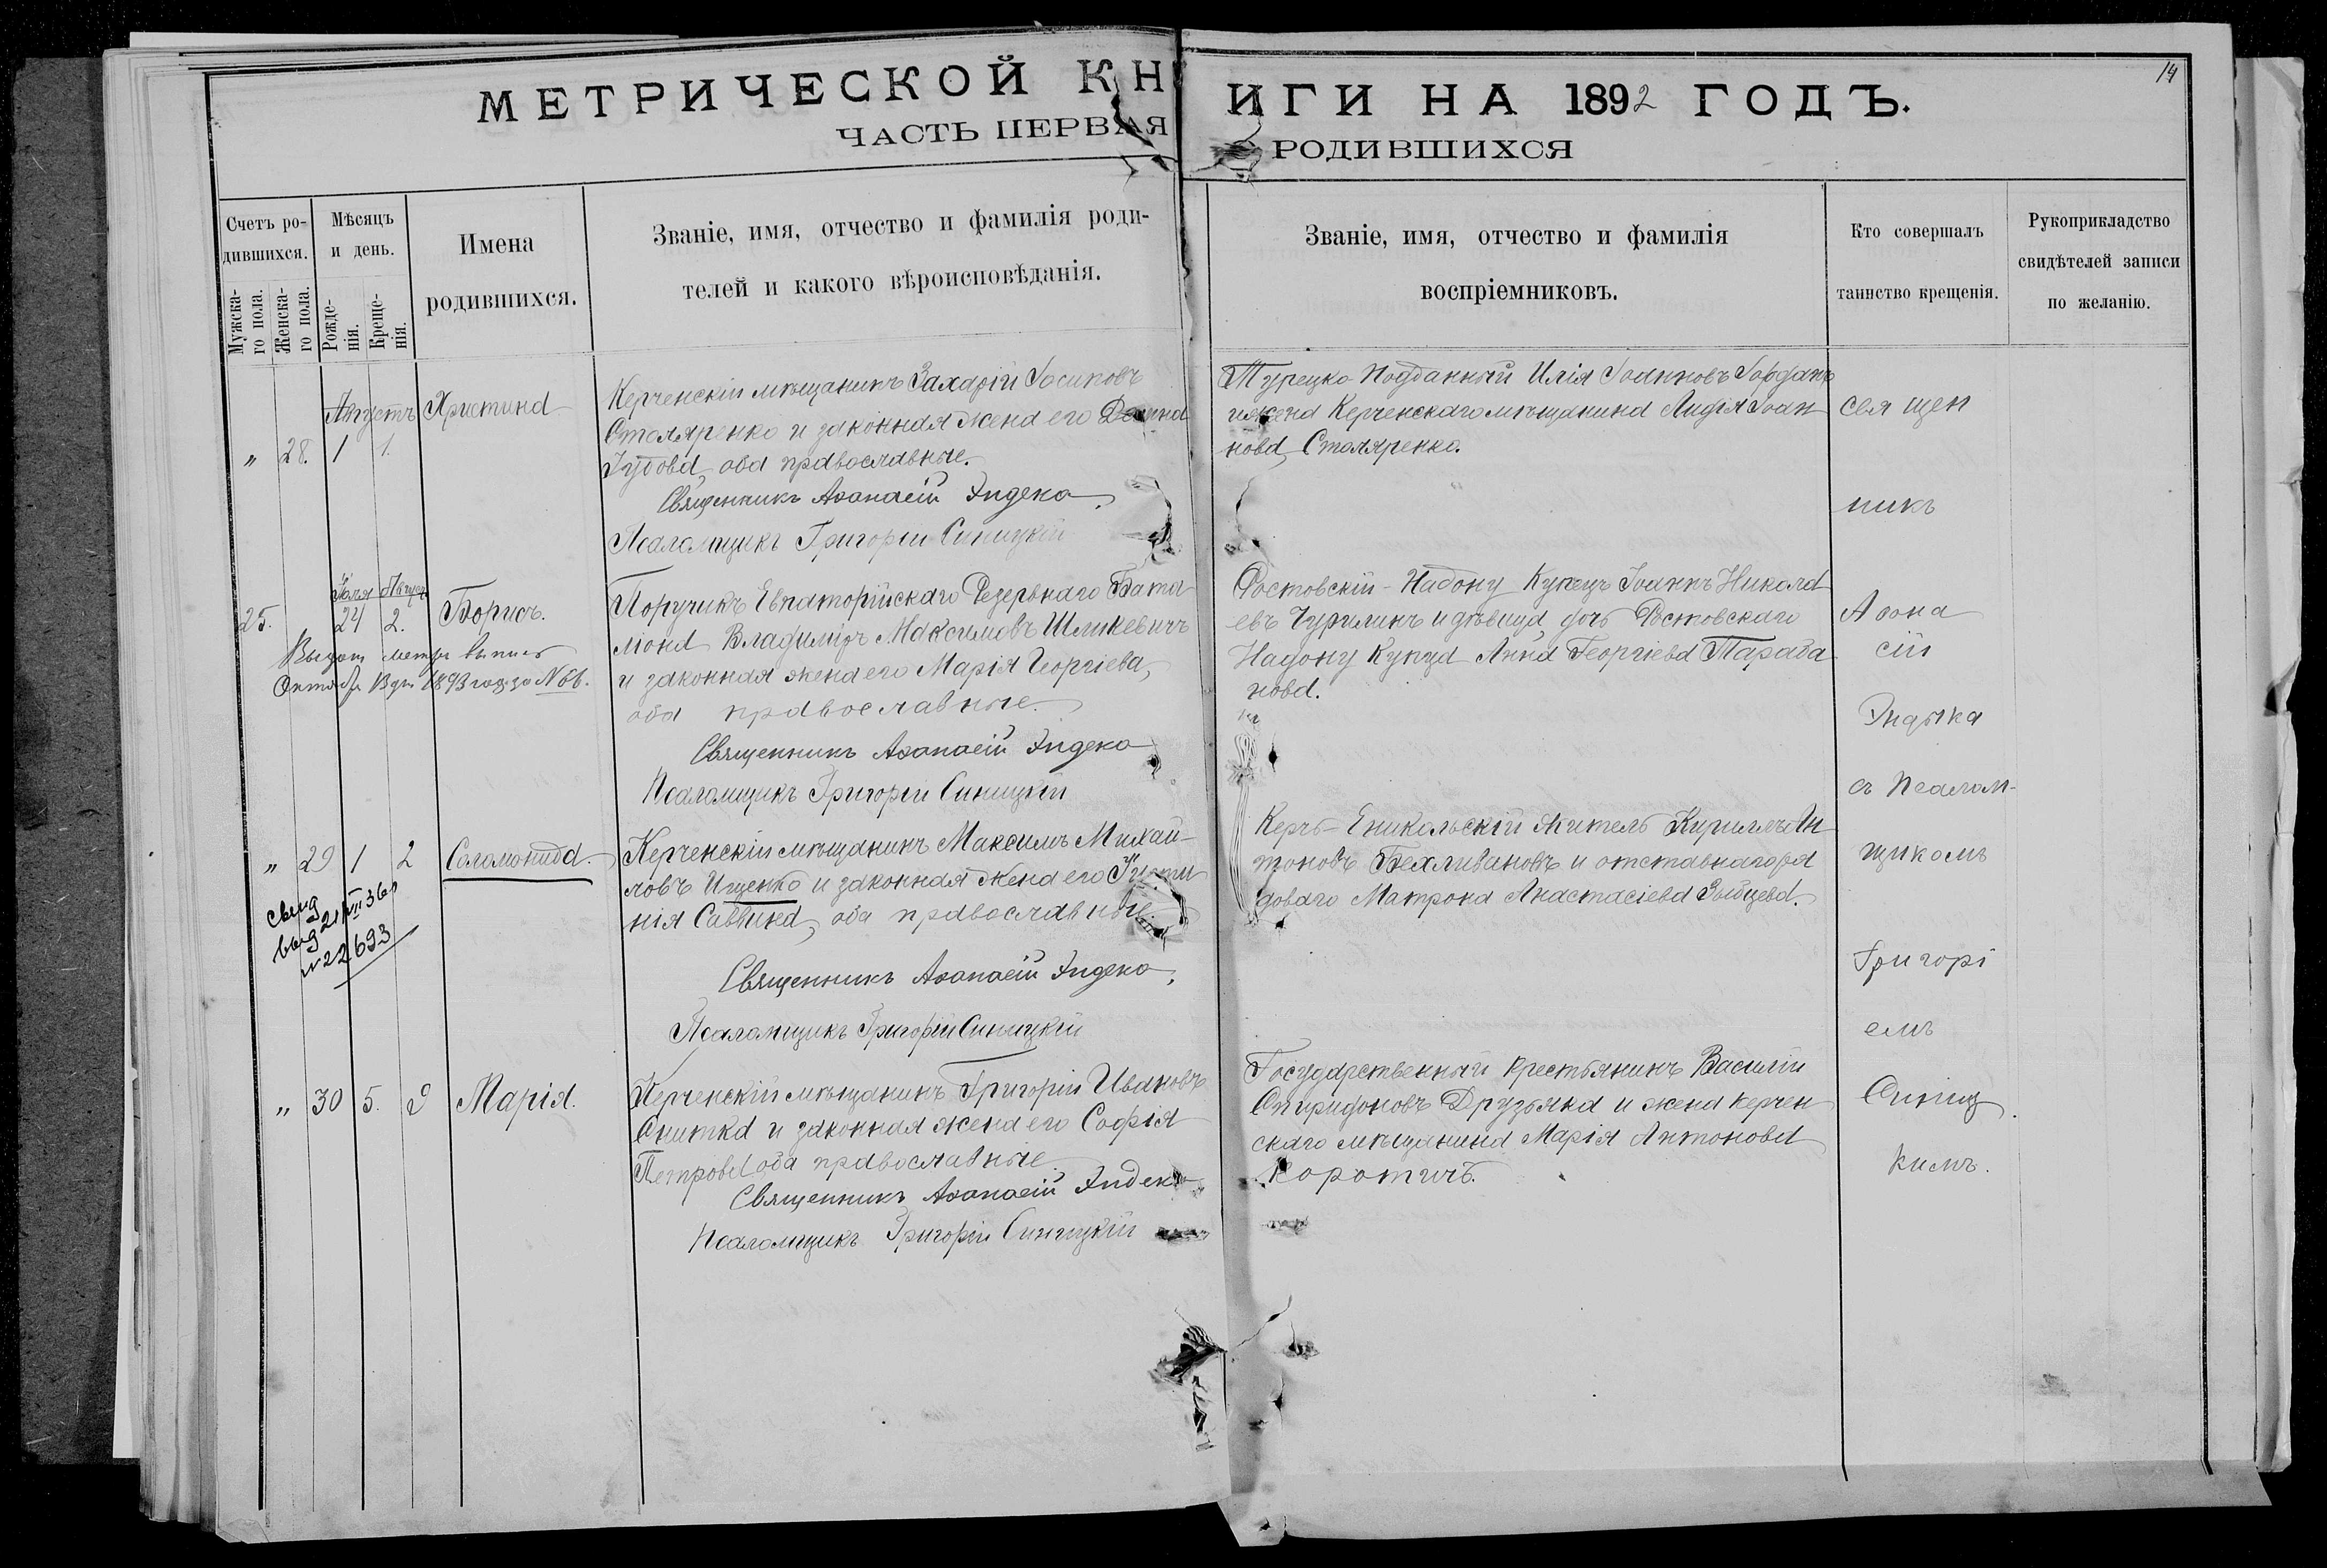 МЕТРИЧЕСКОЙ КНИГИ НА 1892 ГОДЪ.
14
ЧАСТЬ ПЕРВАЯ РОДИВШИХСЯ
Счетъ ро-
дившихся.
Мужска-
го пола.
Женска-
го пола.
Мѣсяцъ
и день.
Рожде-
нія.
Креще-
нія.
Имена
родившихся.
Званіе, имя, отчество и фамилія роди-
телей и какого вѣроисповѣданія.
Званіе, имя, отчество и фамилія
воспріемниковъ.
Кто совершалъ
таинство крещенія.
Рукоприкладство
свидѣтелей записи
по желанію.
Августъ
„ 28. 1 1.
Христина
Керченскій мѣщанинъ Захарій Іосиповъ
Столяренко и законная жена его
оба православные.
Священникъ Аѳанасій Индеко
Псаломщикъ Григорій Синицкій
Турецко-Подданный Илія Іоанновъ Іорданъ
и жена Керченскаго мѣщанина Лидія Іоан
нова Столяренко.
Іюля Август
25. 24 2.
Борисъ.
Выдан метр выпись
Октябр 1893 год за №66.
Поручикъ Евпаторійскаго Резервнаго Бата
ліона Владиміръ Максимовъ Шликевичъ
и законная жена его Марія Георгіева,
оба православные.
Священникъ Аѳанасій Индеко
Псаломщикъ Григорій Синицкій
Ростовскій-Надону Купецъ Іоаннъ Никола
евъ Чурилинъ и дѣвица дочь Ростовскаго
Надону Купца Анна Георгіева Тараба
нова.
„ 29 1 2
Соломонида.
свид
выд 21/VII 36г
№22693
Керченскій мѣщанинъ Максимъ Михай-
ловъ Ищенко и законная жена его
нія Саввина, оба православные.
Священникъ Аѳанасій Индеко.
Псаломщикъ Григорій Синицкій
Керчь-Еникольскій житель Кириллъ Ан
тоновъ Бехливановъ и отставнаго ря
доваго Матрона Анастасіева Зыбцева.
„ 30 5. 9
Марія.
Керченскій мѣщанинъ Григорій Ивановъ
Снитка и законная жена его Софія
Петрова оба православные.
Священникъ Аѳанасій Индеко
Псаломщикъ Григорій Синицкій
Государственный крестьянинъ Василій
Спиридоновъ Друзьяка и жена керчен
скаго мѣщанина Марія Антонова
Коротичъ.
Священ
никъ
Аѳона
сій
Индыка
съ Псалом-
щикомъ
Григорі
емъ
Синиц
кимъ.